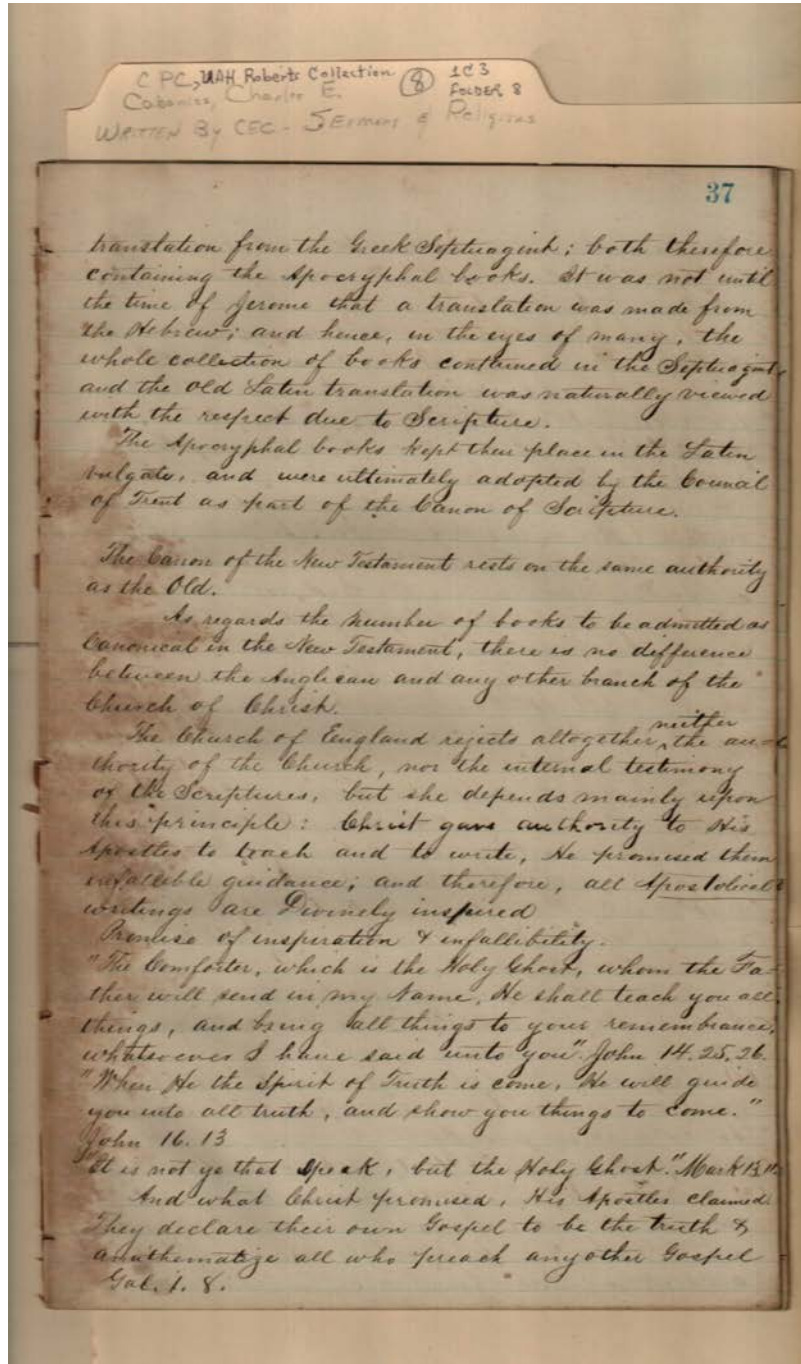 C PC, UAH Roberts Collection (8) 1C3
FOLDER 8
Cabaniss, Charles E.
WRITTEN By CEC - Sermons & Religious
37
translation from the Greek Septuagint; both therefore
containing the Apocryphal books. It was not until
the time of Jerome that a translation was made from
the Hebrew; and hence, in the eyes of many, the
whole collection of books contained in the Septuagint
and the Old Latin translation was naturally viewed
with the respect due to Scripture.
The Apocryphal books kept their place in the Latin
vulgate, and were ultimately adopted by the Council
of Trent as part of the Canon of Scripture.
The Canon of the New Testament rests on the same authority
as the Old.
As regards the number of books to be admitted as
Canonical in the New Testament, there is no difference
between the Anglican and any other branch of the
Church of Christ.
neither
The Church of England rejects altogether ‸ the au-
thority of the Church, nor the internal testimony
of the Scriptures, but she depends mainly upon
this principle: Christ gave authority to His
Apostles to teach and to write, He promised them
infallible guidance; and therefore, all Apostolical
writings are Divinely inspired
Promise of inspiration & infallibility.
"The Comforter, which is the Holy Ghost, whom the Fa-
ther will send in my Name, He shall teach you all
things, and bring all things to your remembrance,
whatsoever I have said unto you" John 14. 25, 26.
"When He the Spirit of Truth is come, He will guide
you into all truth, and show you things to come."
John 16. 13
"It is not ye that speak, but the Holy Ghost." Mark 13. 11
And what Christ promised, His Apostles claimed.
They declare their own Gospel to be the truth &
anathematize all who preach any other Gospel
Gal. 1. 8.